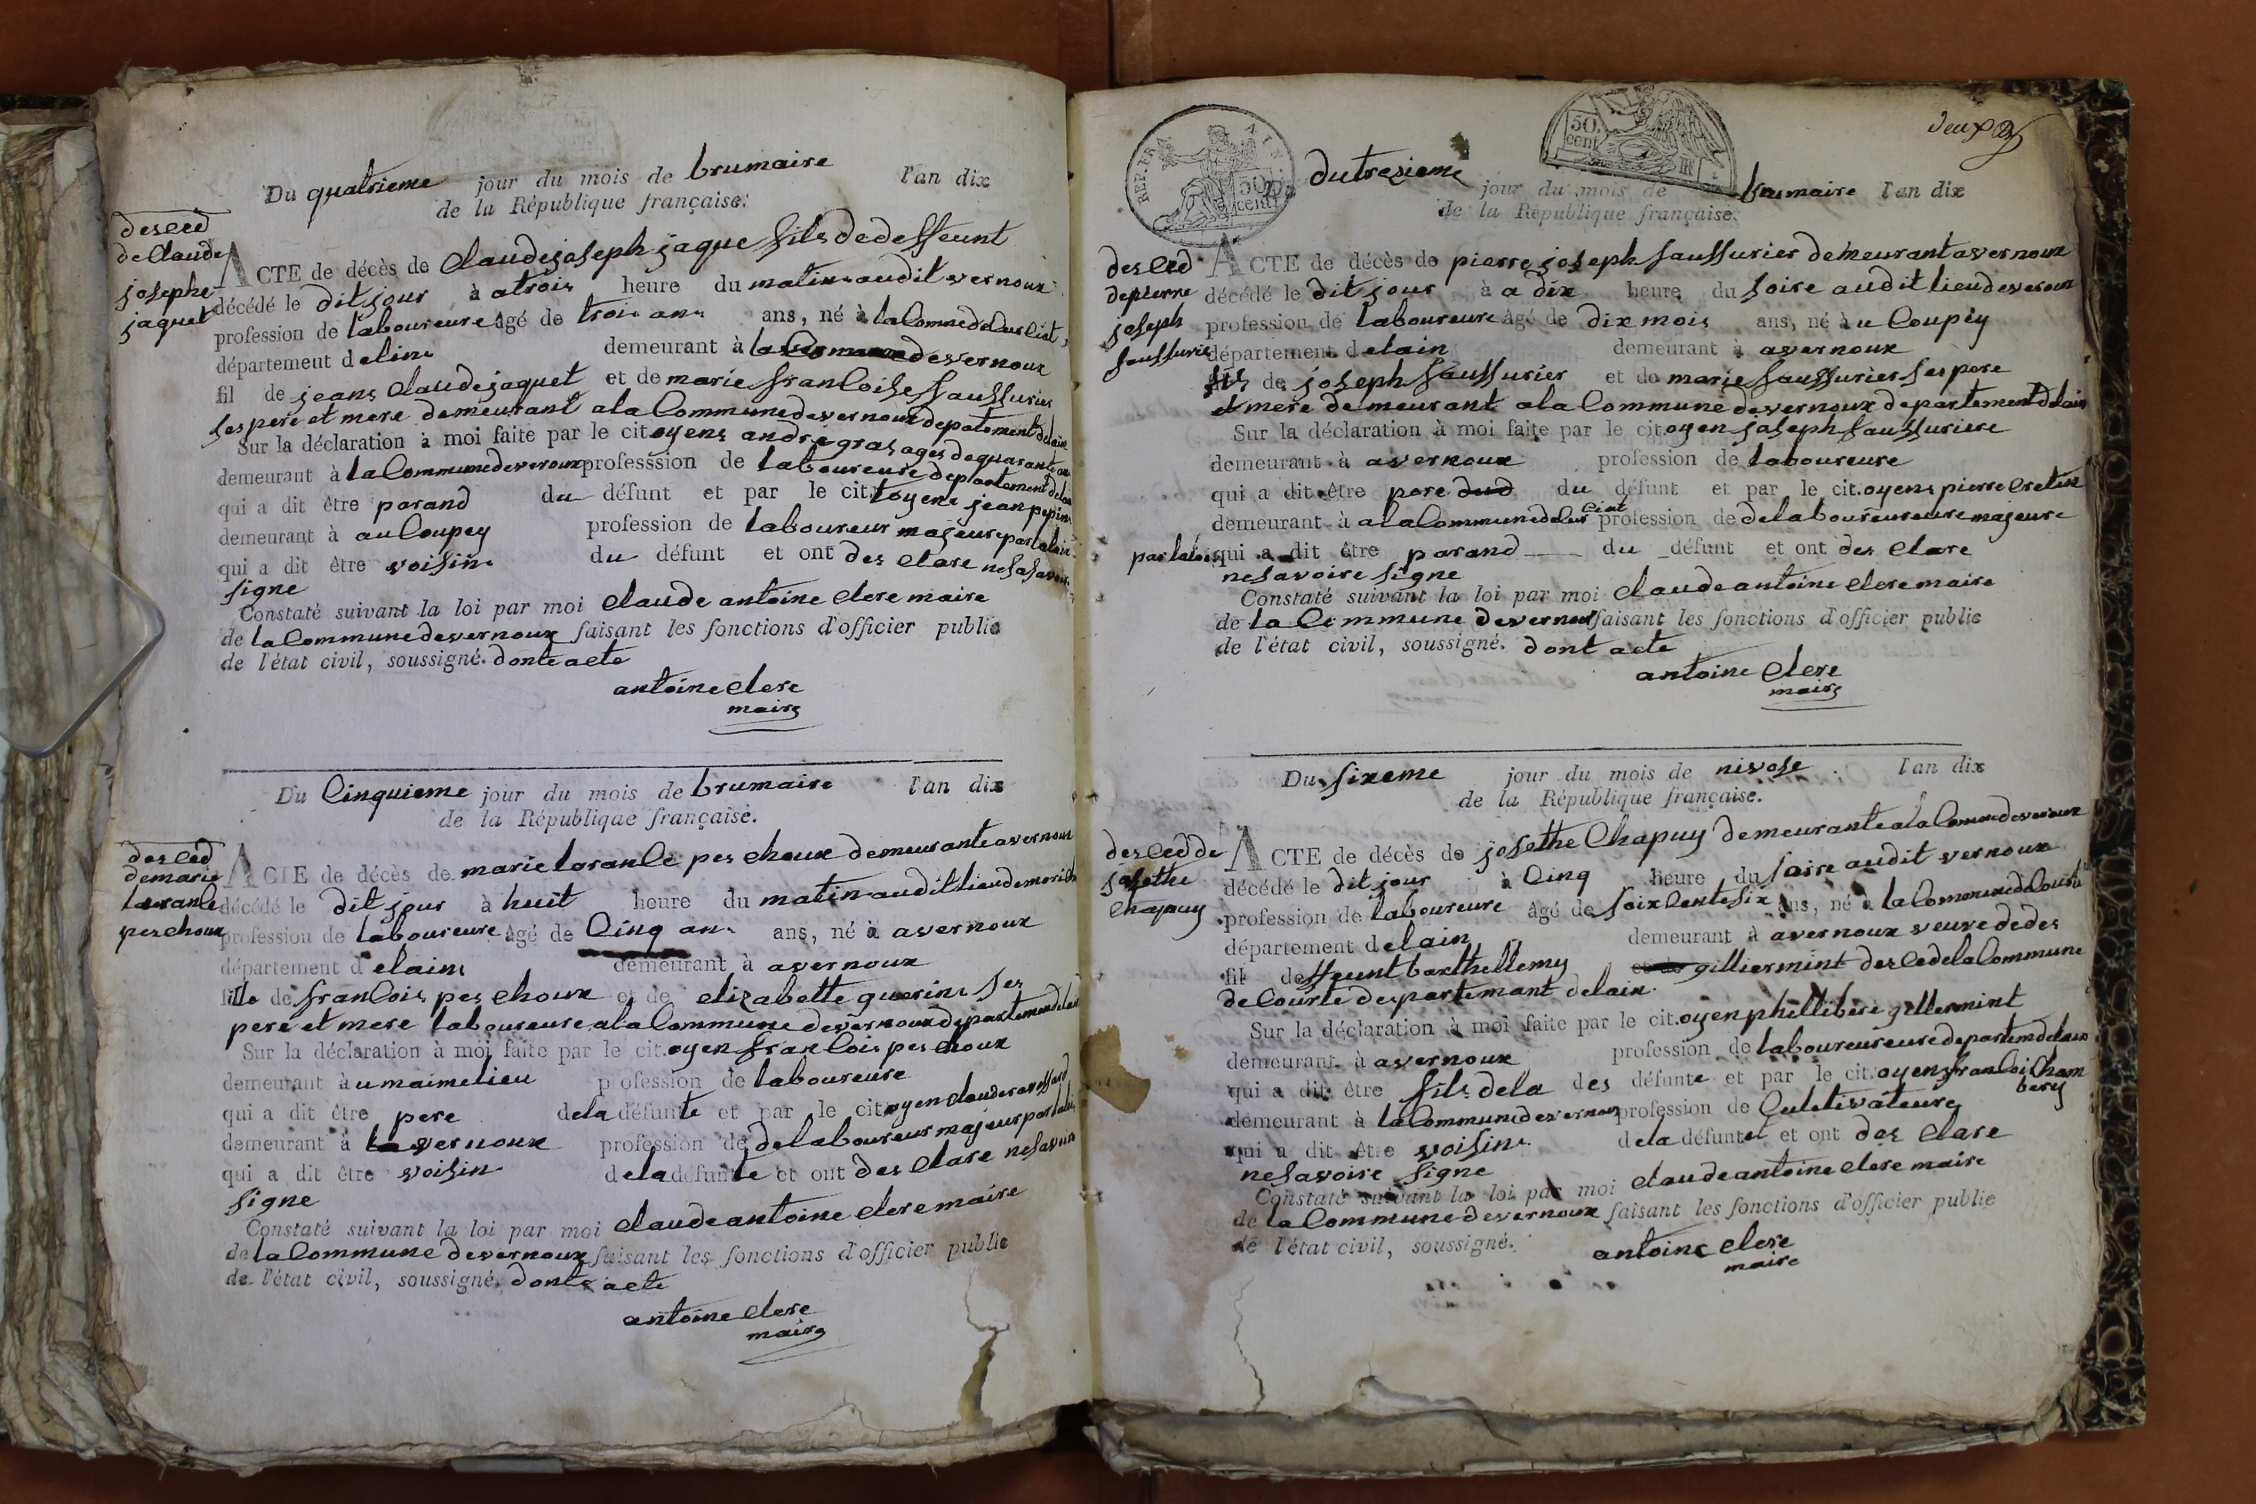 Du quatrieme jour du mois de brumaire l'an dix
de la République française.
des ced
de Claude
josephe
jaquet
ACTE de décès de Claude joseph jaque fils de deffeunt
décédé le dit jour à atrois heure du matin audit vernoux
profession de laboureure âgé de trois ans ans, né à la Comne de
département d elins demeurant à la de vernoux
fil de jeans Claude jaquet et de marie franCoise faussurier
ses pere et mere demeurant ala Commune de vernoux depatement delain
Sur la déclaration à moi faite par le citoyens andre gras ages de quarante an
demeurant à la Commune de veroux professsion de laboureure departement delain
qui a dit être parand du défunt et par le cit. toyens jean pepin
demeurant à au Coupey profession de laboureur majeure par laloi
qui a dit être voisin du défunt et ont des Clare ne sa savoir
signe
Constaté suivant la loi par moi Claude antoine Clere maire
de la Commune de vernoux faisant les fonctions d'officier public
de l'état civil, soussigné. donte acte
antoine Clere
maire
Du Cinquieme jour du mois de brumaire l'an dix
de la République française.
des Ced
de marie
loranCe
peschoux
ACTE de décès de marie loranCe pes choux demeurante a vernoux
décédé le dit jour à huit heure du matin audit lieu de
profession de laboureure âgé de Cinq an ans, né à avernoux
département d elains demeurant à avernoux
fille de franCois pes choux et de elizabette guerins ses
pere et mere laboureure ala Commune de vernoux departement delain
Sur la déclaration à moi faite par le cit. oyen franCois pes choux
demeurant à u maime lieu profession de laboureure
qui a dit être pere dela défunte et par le cit. oyen Claude
demeurant à vernoux profession de delaboureur majeur par laloi
qui a dit être voisin dela défunte et ont des Clare ne savoir
signe
Constaté suivant la loi par moi Claude antoine Clere maire
de la Commune de vernoux faisant les fonctions d'officier public
de l'état civil, soussigné. donte acte
antoine Clere
maire
deux
REP. FRA.
50 cent
50 cent
Du tresieme jour du mois de brumaire l'an dix
de la République française.
des Ced
de pierre
joseph
faussurie
ACTE de décès de pierre joseph faussurier demeurant a vernoux
décédé le dit jour à a dix heure du soire audit lieu de veroux
profession de laboureure âgé de dix mois ans, né à u Coupey
département d elain demeurant à avernoux
fils de joseph faussurier et de marie faussurier ses pere
et mere demeurant ala Commune de vernoux departement delain
Sur la déclaration à moi faite par le cit. oyen joseph faussuriere
demeurant à avernoux profession de laboureure
qui a dit être pere du défunt et par le cit. oyens pierre Cretin
demeurant à ala Commune de profession de delaboureureure majeure
par laloi qui a dit être parand du défunt et ont des Clare
ne savoire signe
Constaté suivant la loi par moi Claude antoine Clere maire
de la Commune de vernoux faisant les fonctions d'officier public
de l'état civil, soussigné. dont acte
antoine Clere
maire
Du sixeme jour du mois de nivose l'an dix
de la République française.
des Ced de
josethe
Chapuy
ACTE de décès de josethe Chapuy demeurante ala Comune de vernoux
décédé le dit jour à Cinq heure du soire audit vernoux
profession de laboureure âgé de soixCente six ans, né à la Commune de
département d elain demeurant à avernoux veuve de des
fil de ffeunt barthellemy gilliermint des Ced ela Commune
de Courte despartemant delain
Sur la déclaration à moi faite par le cit. oyen phillibere gillermint
demeurant à avernoux profession de laboureureure departem delain
qui a dit être fils dela des défunte et par le cit. oyens franCois Cham
bery
demeurant à la Commune de vernoux profession de Culetivateure
qui a dit être voisin dela défunte et ont des Clare
ne savoire signe
Constaté suivant la loi par moi Claude antoine Clere maire
de la Commune de vernoux faisant les fonctions d'officier public
de l'état civil, soussigné.
antoine Clere
maire